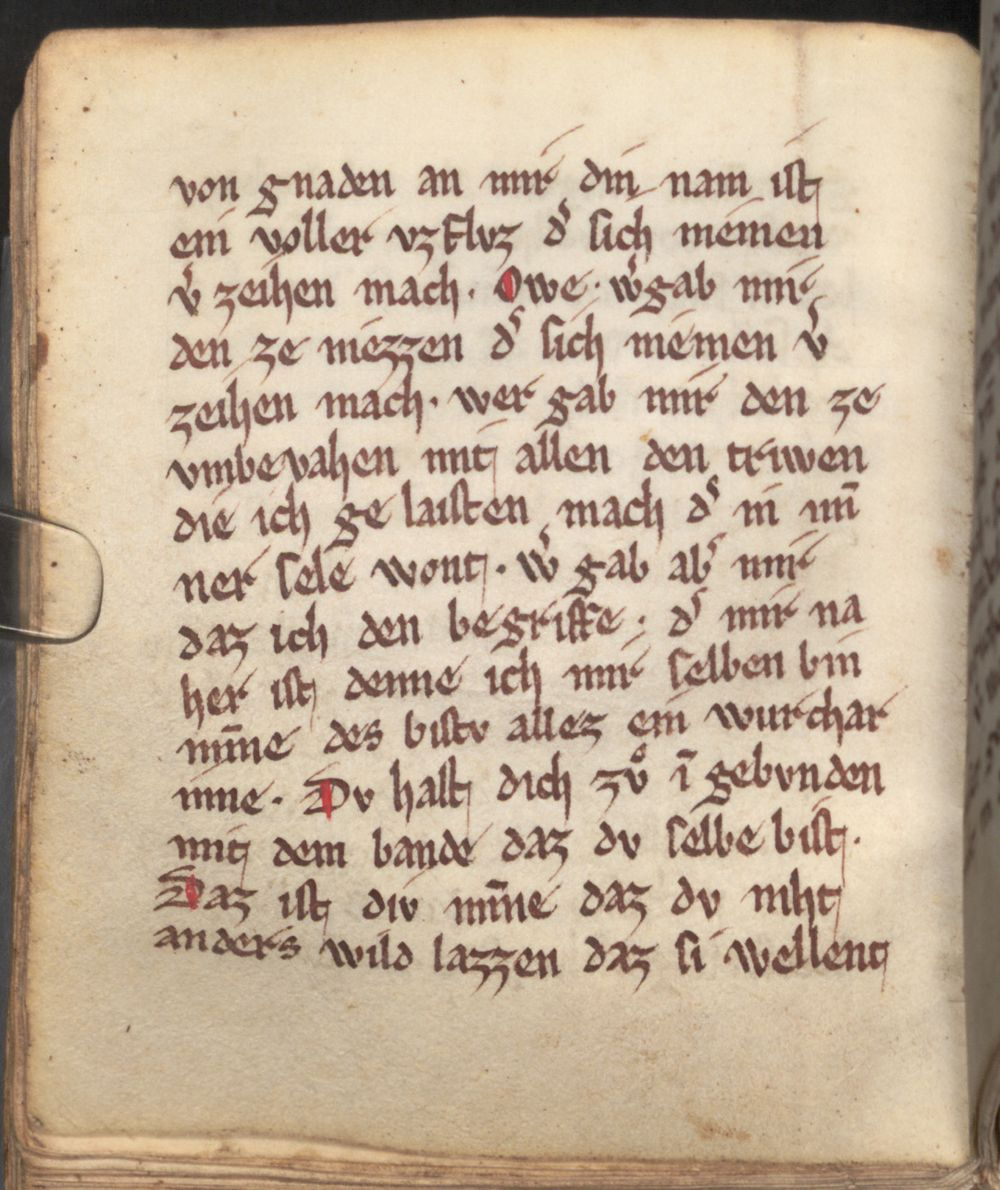 von gnaden an mir din nam ist
ein voller vzflvz dˢ sich nieman
v̾ zeihen mach. Owe. wˢ gab mir
den ze niezzen dˢ sich nieman v̾
zeihen mach. wer gab mir den ze
vmbevahen mit allen den triwen
die ich ge laisten mach dˢ in min̄
ner sele wont. wˢ gab abˢ mir
daz ich den begriffe. dˢ mir na
her ist denne ich mir selben bin
mīne des bistv allez ein wurchar
inne. Dv hast dich zvͦ ī gebvnden
mit dem bande daz dv selbe bist.
Daz ist div mīne daz dv niht
anders wild lazzen daz si wellent